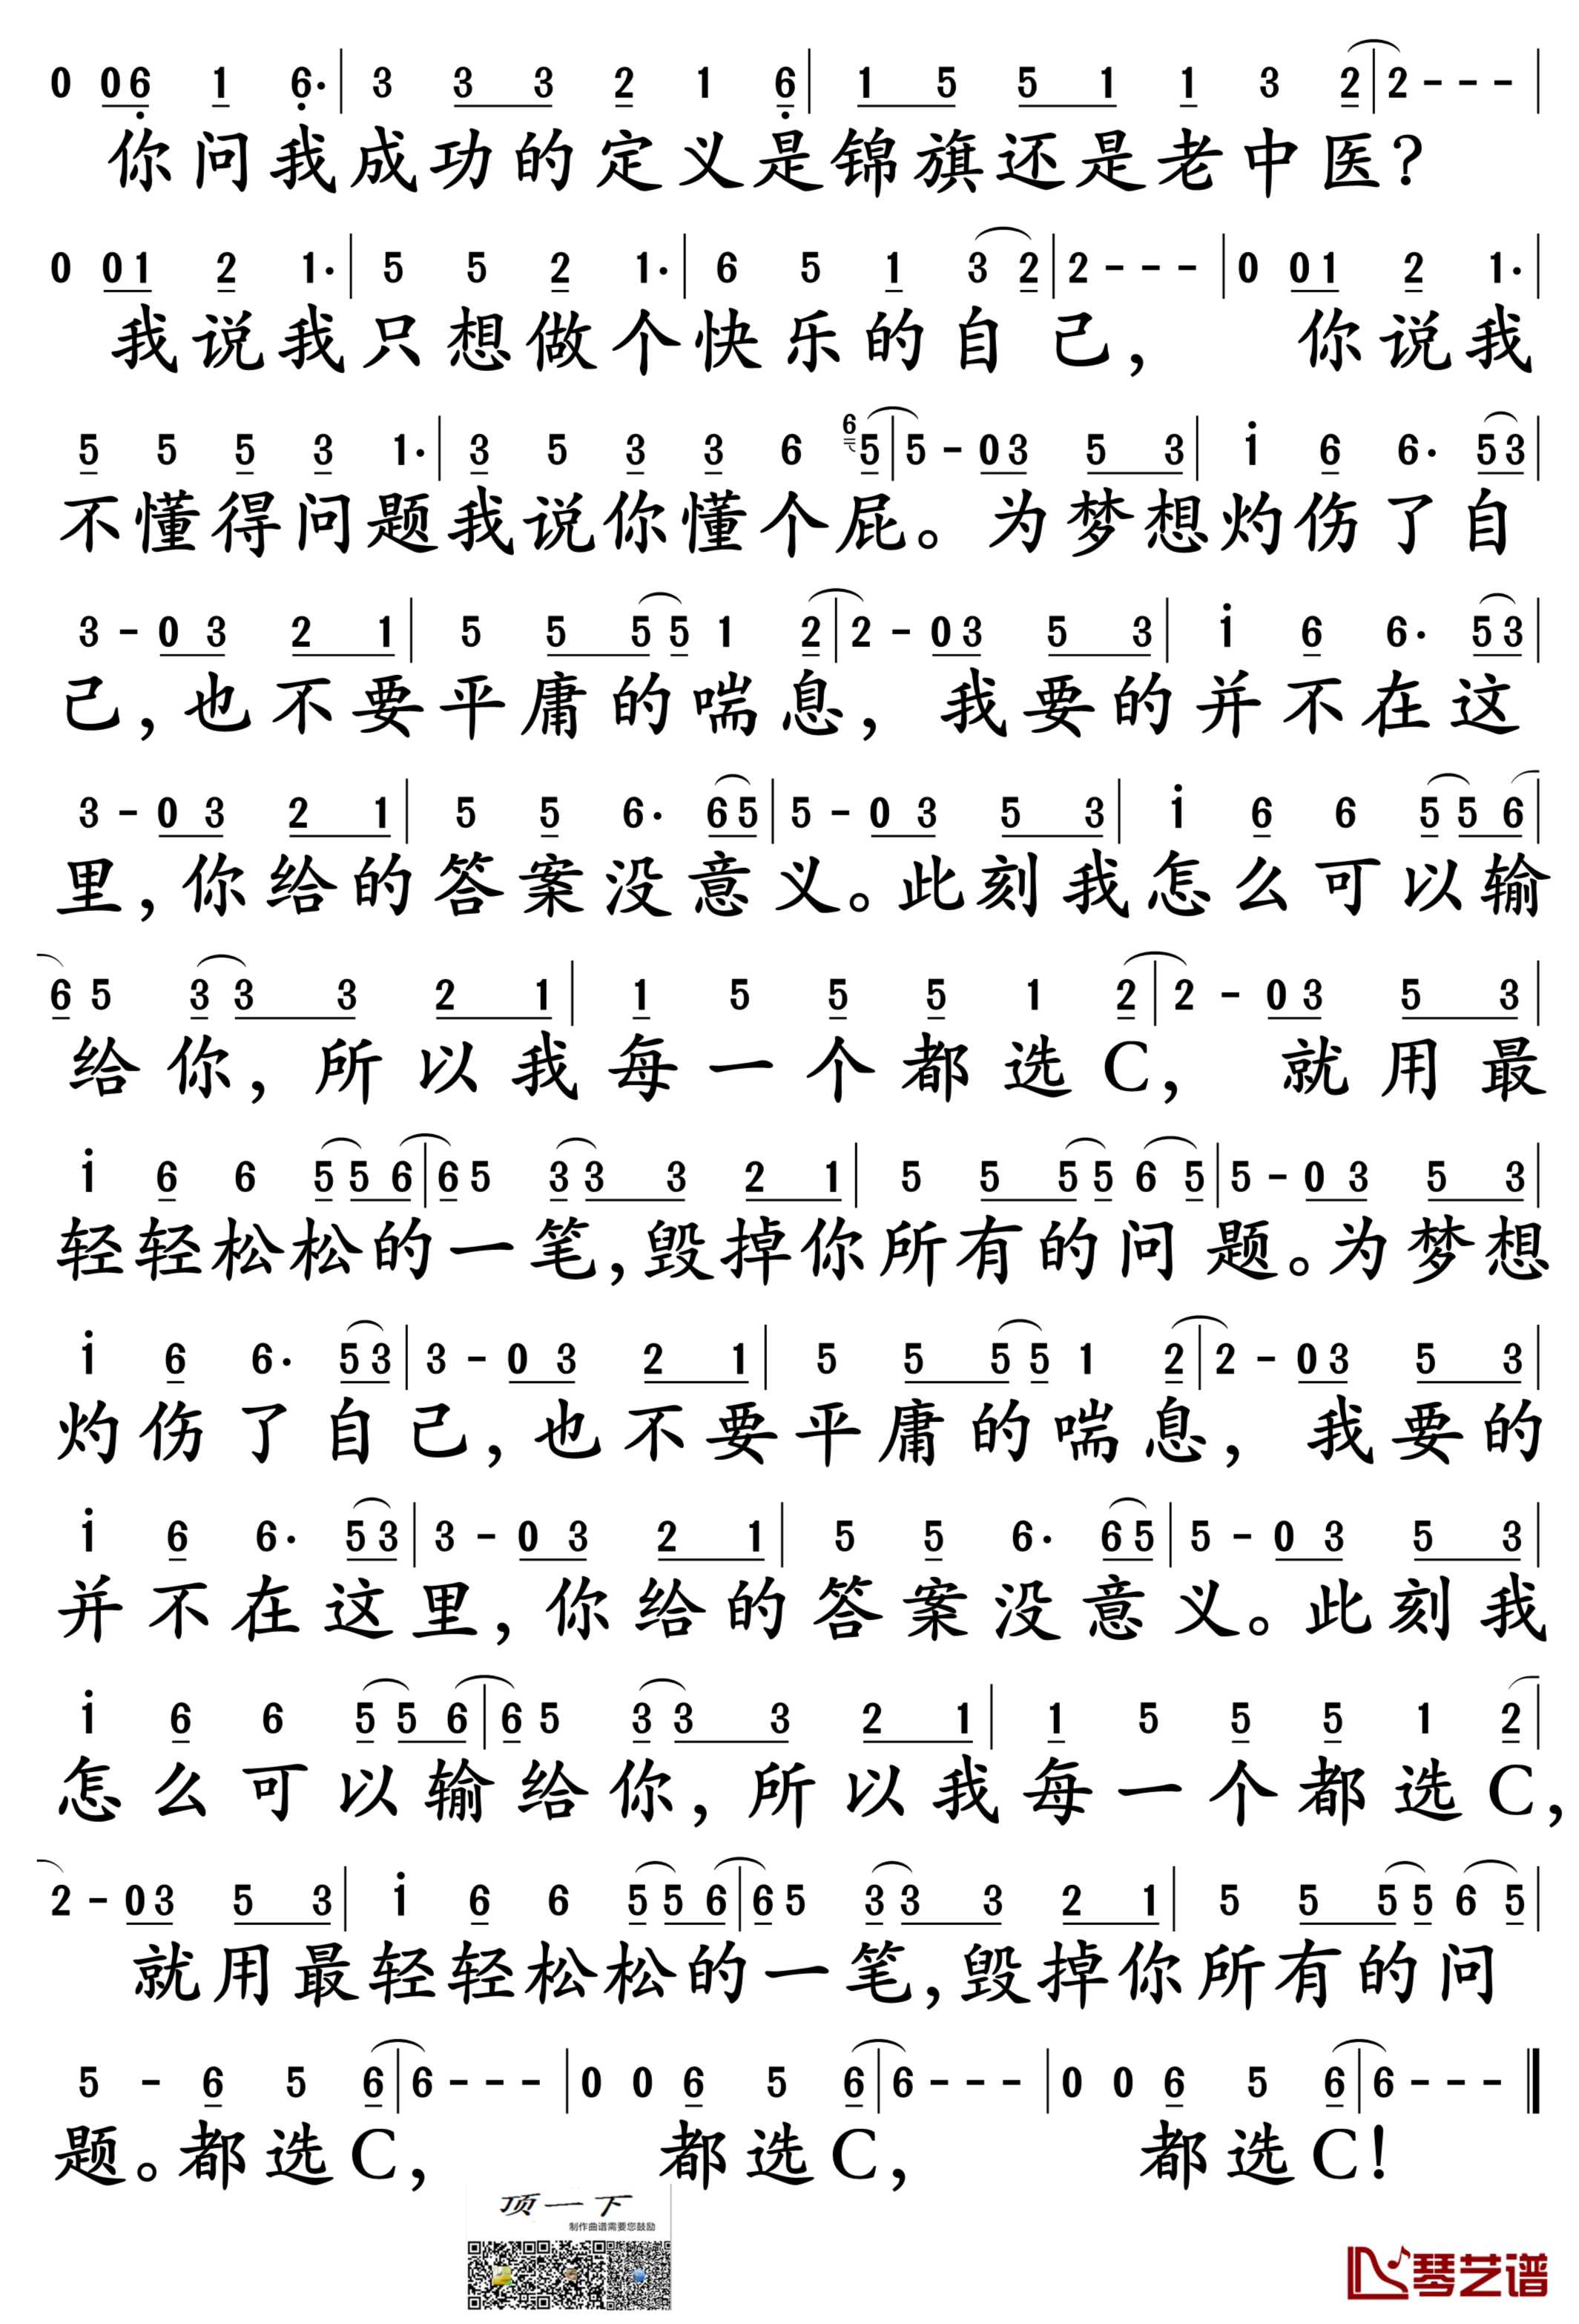 0 06 1 6· | 3 3 3 2 1 6 | 1 5 5 1 1 3 2 | 2 - - - |
你问我成功的定义是锦旗还是老中医?
0 01 2 1· | 5 5 2 1· | 6 5 1 3 2 | 2 - - - | 0 01 2 1· |
我说我只想做个快乐的自己, 你说我
5 5 5 3 1· | 3 5 3 3 6 6 5 | 5 - 03 5 3 | i 6 6· 53 |
不懂得问题我说你懂个屁。为梦想灼伤了自
3 - 0 3 2 1 | 5 5 5 5 1 2 | 2 - 03 5 3 | i 6 6· 53 |
己,也不要平庸的喘息, 我要的并不在这
3 - 0 3 2 1 | 5 5 6· 65 | 5 - 0 3 5 3 | i 6 6 5 5 6 |
里,你给的答案没意义。此刻我怎么可以输
6 5 3 3 3 2 1 | 1 5 5 5 1 2 | 2 - 03 5 3 |
给你,所以我每一个都选C, 就用最
i 6 6 5 5 6 | 6 5 3 3 3 2 1 | 5 5 5 5 6 5 | 5 - 0 3 5 3 |
轻轻松松的一笔,毁掉你所有的问题。为梦想
i 6 6· 53 | 3 - 0 3 2 1 | 5 5 5 5 1 2 | 2 - 03 5 3 |
灼伤了自己,也不要平庸的喘息, 我要的
i 6 6· 53 | 3 - 0 3 2 1 | 5 5 6· 65 | 5 - 0 3 5 3 |
并不在这里,你给的答案没意义。此刻我
i 6 6 5 5 6 | 6 5 3 3 3 2 1 | 1 5 5 5 1 2 |
怎么可以输给你,所以我每一个都选C,
2 - 03 5 3 | i 6 6 5 5 6 | 6 5 3 3 3 2 1 | 5 5 5 5 6 5 |
就用最轻轻松松的一笔,毁掉你所有的问
5 - 6 5 6 | 6 - - - | 0 0 6 5 6 | 6 - - - | 0 0 6 5 6 | 6 - - - ‖
题。都选C, 都选C, 都选C!
顶一下
制作曲谱需要您鼓励
琴艺谱